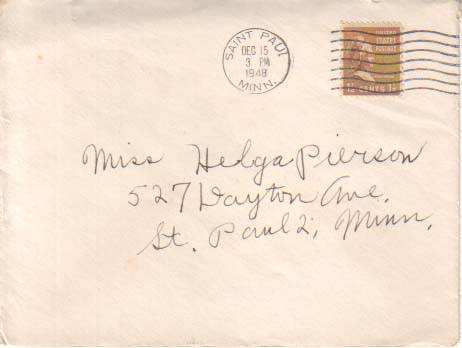 SAINT PAUL
DEC 15
3 PM
1948
MINN.
UNITED
STATES
POSTAGE
1½ CENTS 1½
Miss Helga Pierson
527 Dayton Ave.
St. Paul 2, Minn.